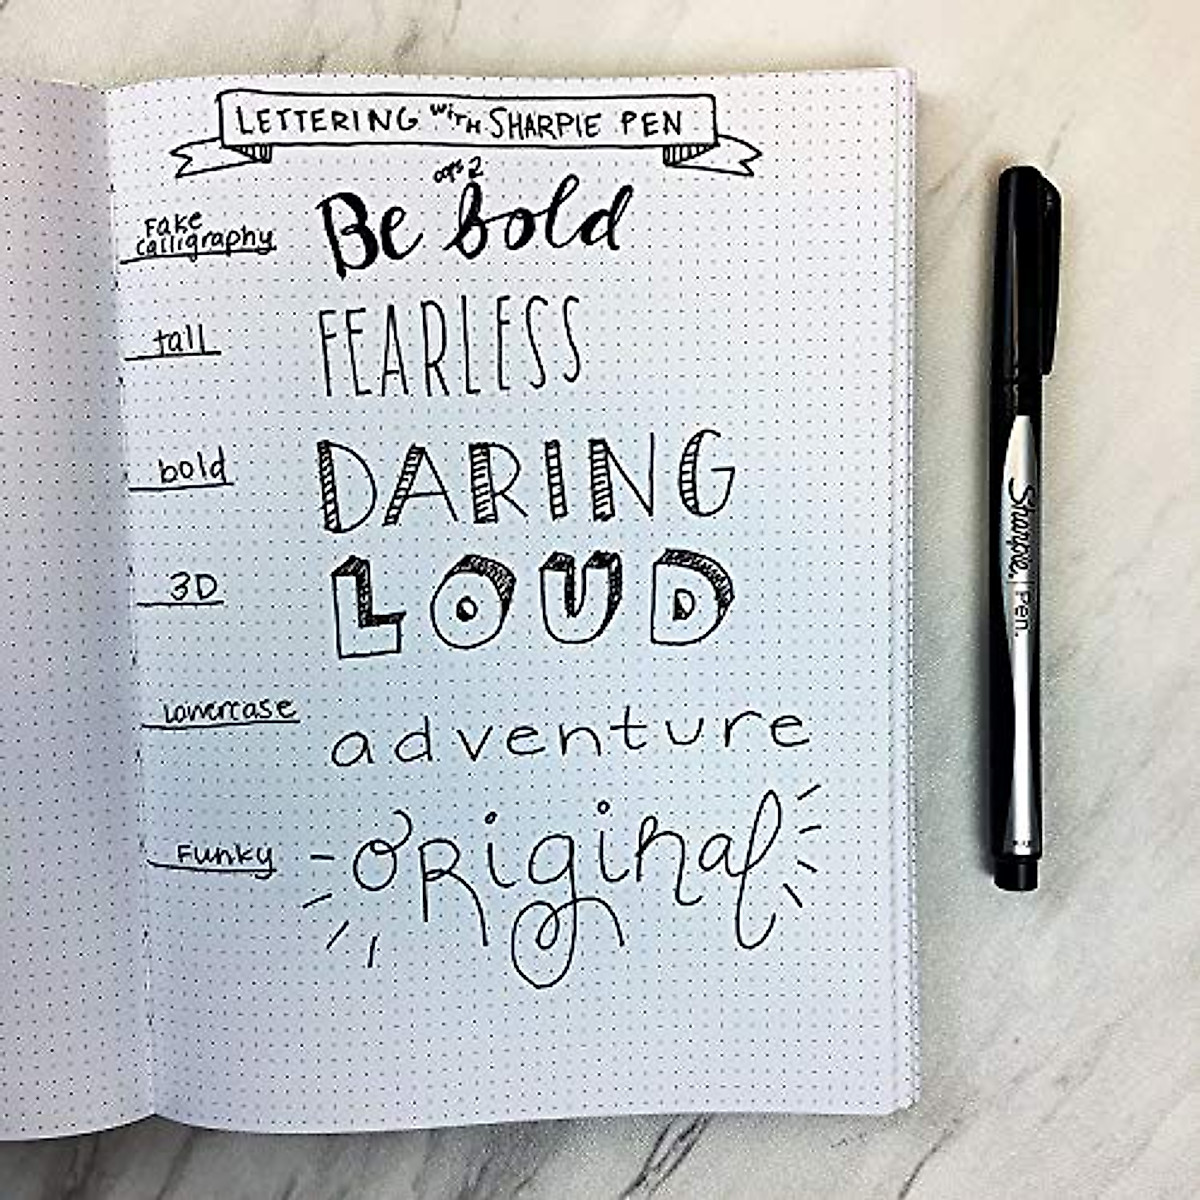 LETTERING WITH SHARPIE PEN
oops 2
Fake
calligraphy
Be bold
tall
FEARLESS
bold
DARING
3D
LOUD
lowercase
adventure
Funky
ORiginal
Sharpie. Pen.